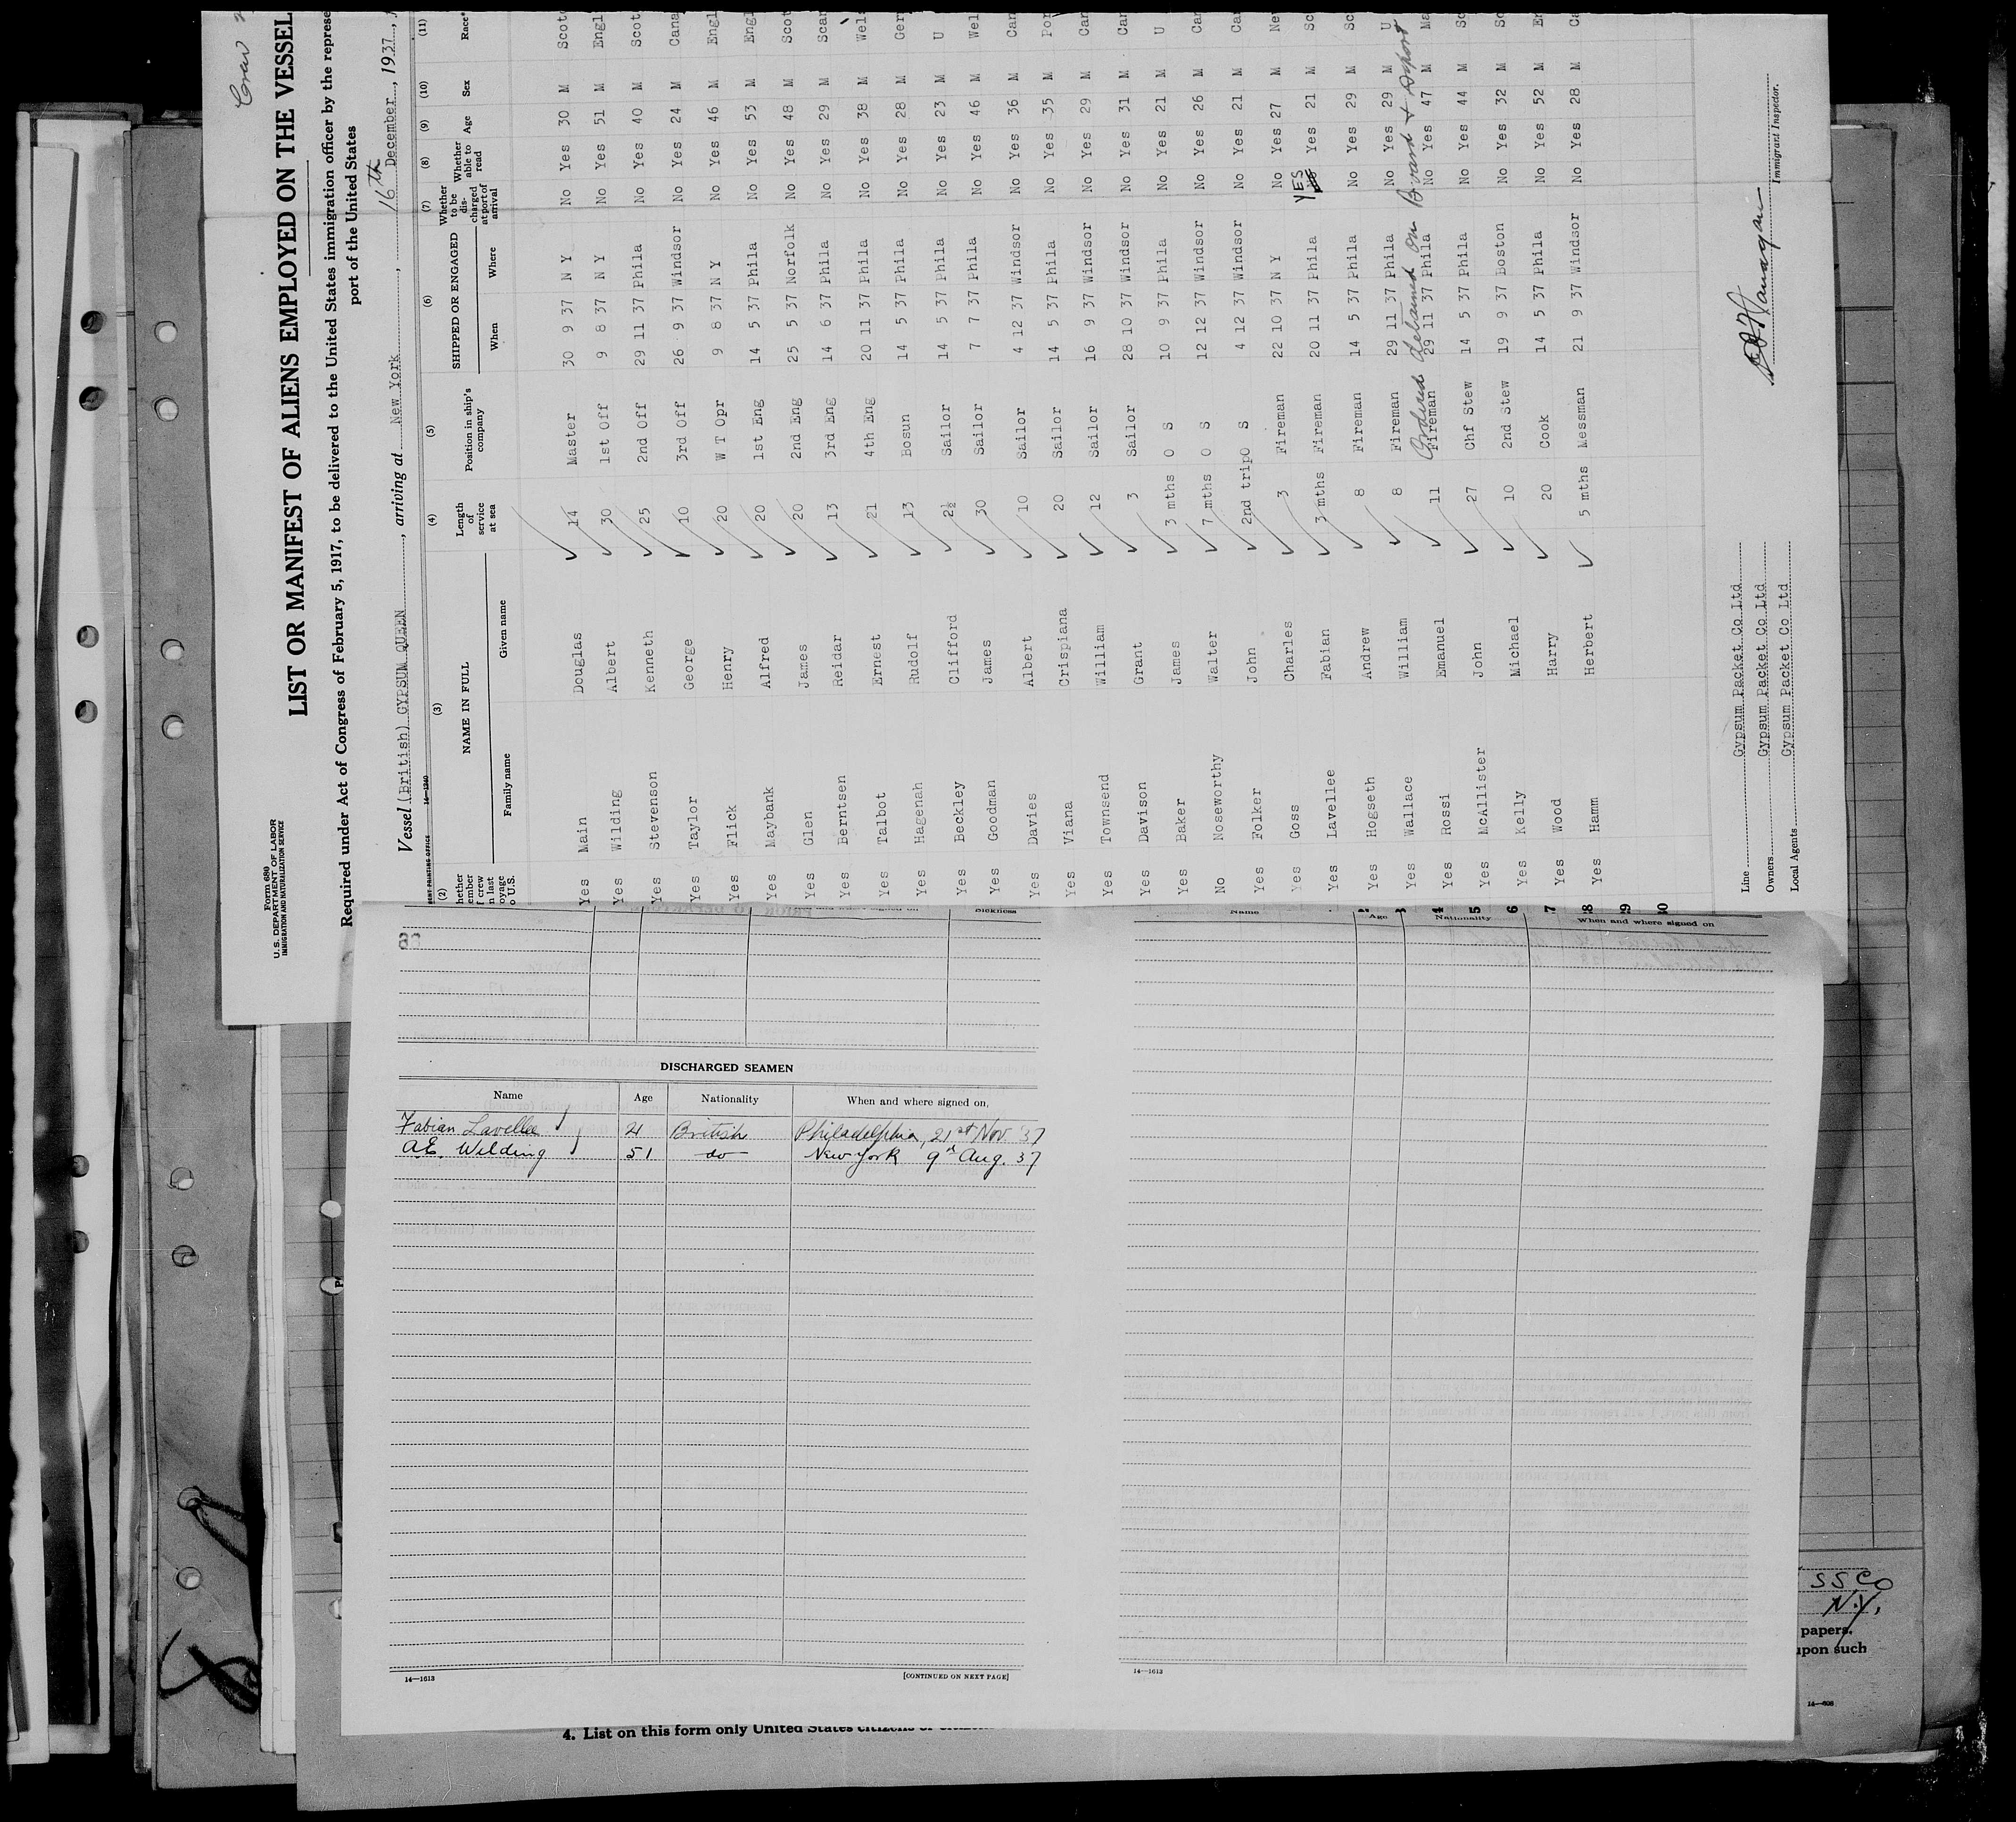 Crew
Form 680
U.S. DEPARTMENT OF LABOR
IMMIGRATION AND NATURALIZATION SERVICE
LIST OR MANIFEST OF ALIENS EMPLOYED ON THE VESSEL
Required under Act of Congress of February 5, 1917, to be delivered to the United States immigration officer by the represe
port of the United States
Vessel (British) GYPSUM QUEEN, arriving at New York, 16th December, 1937,
(2) (3) (4) (5) (6) (7) (8) (9) (10) (11)
hether ember f crew n last oyage o U.S. NAME IN FULL Family name Given name Length of service at sea Position in ship's company SHIPPED OR ENGAGED When Where Whether to be discharged at port of arrival Whether able to read Age Sex Race*
Yes Main Douglas 14 Master 30 9 37 N Y No Yes 30 M Scot
Yes Wilding Albert 30 1st Off 9 8 37 N Y No Yes 51 M Engl
Yes Stevenson Kenneth 25 2nd Off 29 11 37 Phila No Yes 40 M Scot
Yes Taylor George 10 3rd Off 26 9 37 Windsor No Yes 24 M Cana
Yes Flick Henry 20 W T Opr 9 8 37 N Y No Yes 46 M Engl
Yes Maybank Alfred 20 1st Eng 14 5 37 Phila No Yes 53 M Engl
Yes Glen James 20 2nd Eng 25 5 37 Norfolk No Yes 48 M Scot
Yes Berntsen Reidar 13 3rd Eng 14 6 37 Phila No Yes 29 M Scan
Yes Talbot Ernest 21 4th Eng 20 11 37 Phila No Yes 38 M Wels
Yes Hagenah Rudolf 13 Bosun 14 5 37 Phila No Yes 28 M Ger
Yes Beckley Clifford 2½ Sailor 14 5 37 Phila No Yes 23 M U
Yes Goodman James 30 Sailor 7 7 37 Phila No Yes 46 M Wel
Yes Davies Albert 10 Sailor 4 12 37 Windsor No Yes 36 M Can
Yes Viana Crispiana 20 Sailor 14 5 37 Phila No Yes 35 M Por
Yes Townsend William 12 Sailor 16 9 37 Windsor No Yes 29 M Can
Yes Davison Grant 3 Sailor 28 10 37 Windsor No Yes 31 M Can
Yes Baker James 3 mths O S 10 9 37 Phila No Yes 21 M U
No Noseworthy Walter 7 mths O S 12 12 37 Windsor No Yes 26 M Can
Yes Folker John 2nd trip O S 4 12 37 Windsor No Yes 21 M Ca
Yes Goss Charles 3 Fireman 22 10 37 N Y No Yes 27 M Ne
Yes Lavellee Fabian 3 mths Fireman 20 11 37 Phila YES Yes 21 M Sc
Yes Hogseth Andrew 8 Fireman 14 5 37 Phila No Yes 29 M Sc
Yes Wallace William 8 Fireman 29 11 37 Phila No Yes 29 M U
Ordered detained on Board & deport
Yes Rossi Emanuel 11 Fireman 29 11 37 Phila No Yes 47 M Ma
Yes McAllister John 27 Chf Stew 14 5 37 Phila No Yes 44 M Sc
Yes Kelly Michael 10 2nd Stew 19 9 37 Boston No Yes 32 M Sc
Yes Wood Harry 20 Cook 14 5 37 Phila No Yes 52 M En
Yes Hamm Herbert 5 mths Messman 21 9 37 Windsor No Yes 28 M Ca
Line Gypsum Packet Co Ltd
Owners Gypsum Packet Co Ltd
Local Agents Gypsum Packet Co Ltd
Immigrant Inspector.
Sickness
DISCHARGED SEAMEN
Name Age Nationality When and where signed on,
Fabian Lavellee 21 British Philadelphia, 21st Nov. 37
A.E. Wilding 51 do New York 9th Aug. 37
14—1613 [CONTINUED ON NEXT PAGE]
Name Age Nationality When and where signed on
14—1613
4. List on this form only United States citizens
SS Co
N.Y.
papers.
upon such
14—608